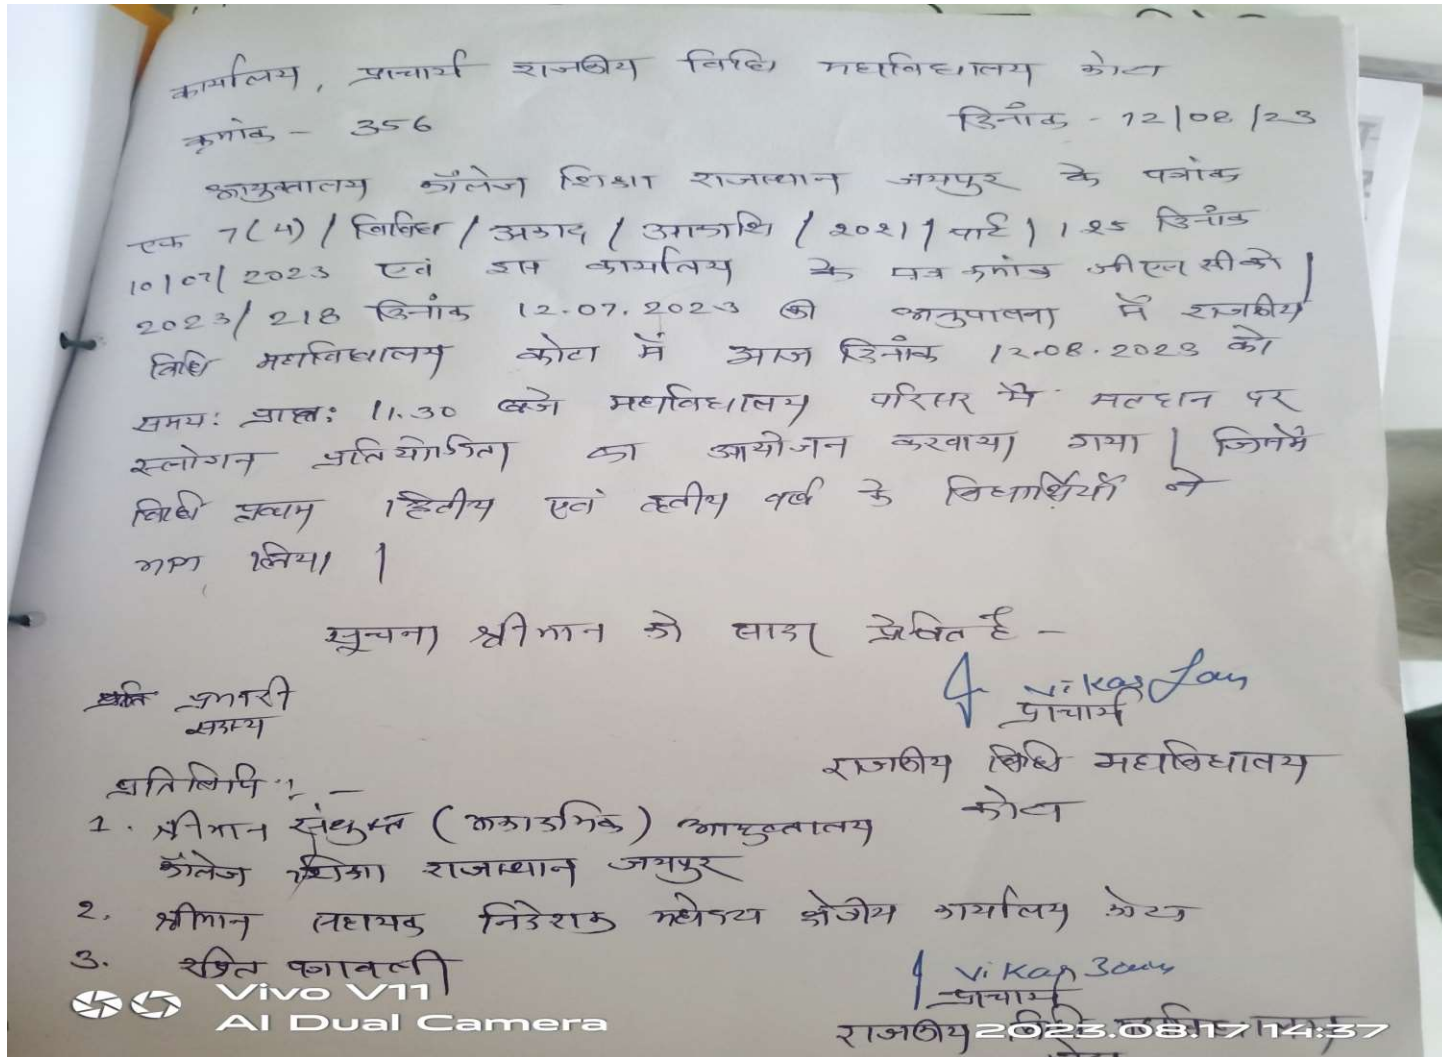 कार्यालय, प्राचार्य राजकीय विधि महाविद्यालय कोटा
क्रमांक - 356
दिनांक - 12/08/23
आयुक्तालय कॉलेज शिक्षा राजस्थान जयपुर के पत्रांक
एफ 7(4) / विविध / अकाद / आकाशि / 2021 / पार्ट / 125 दिनांक
10/07/2023 एवं इस कार्यालय के पत्र क्रमांक जीएलसीको /
2023/218 दिनांक 12.07.2023 की अनुपालना में राजकीय
विधि महाविद्यालय कोटा में आज दिनांक 12.08.2023 को
समय: प्रातः 11.30 बजे महाविद्यालय परिसर में मतदान पर
स्लोगन प्रतियोगिता का आयोजन करवाया गया | जिसमें
विधि प्रथम द्वितीय एवं तृतीय वर्ष के विद्यार्थियों ने
भाग लिया |
सूचना श्रीमान को सादर प्रेषित है -
प्रभारी
सदस्य
Vikas Jain
प्राचार्य
राजकीय विधि महाविद्यालय
कोटा
प्रतिलिपि : -
1. श्रीमान संयुक्त (अकादमिक) आयुक्तालय
कॉलेज शिक्षा राजस्थान जयपुर
2. श्रीमान सहायक निदेशक महोदय क्षेत्रीय कार्यालय कोटा
3. रक्षित पत्रावली
Vikas Jain
प्राचार्य
राजकीय विधि
Vivo V11
AI Dual Camera
2023.08.17 14:37